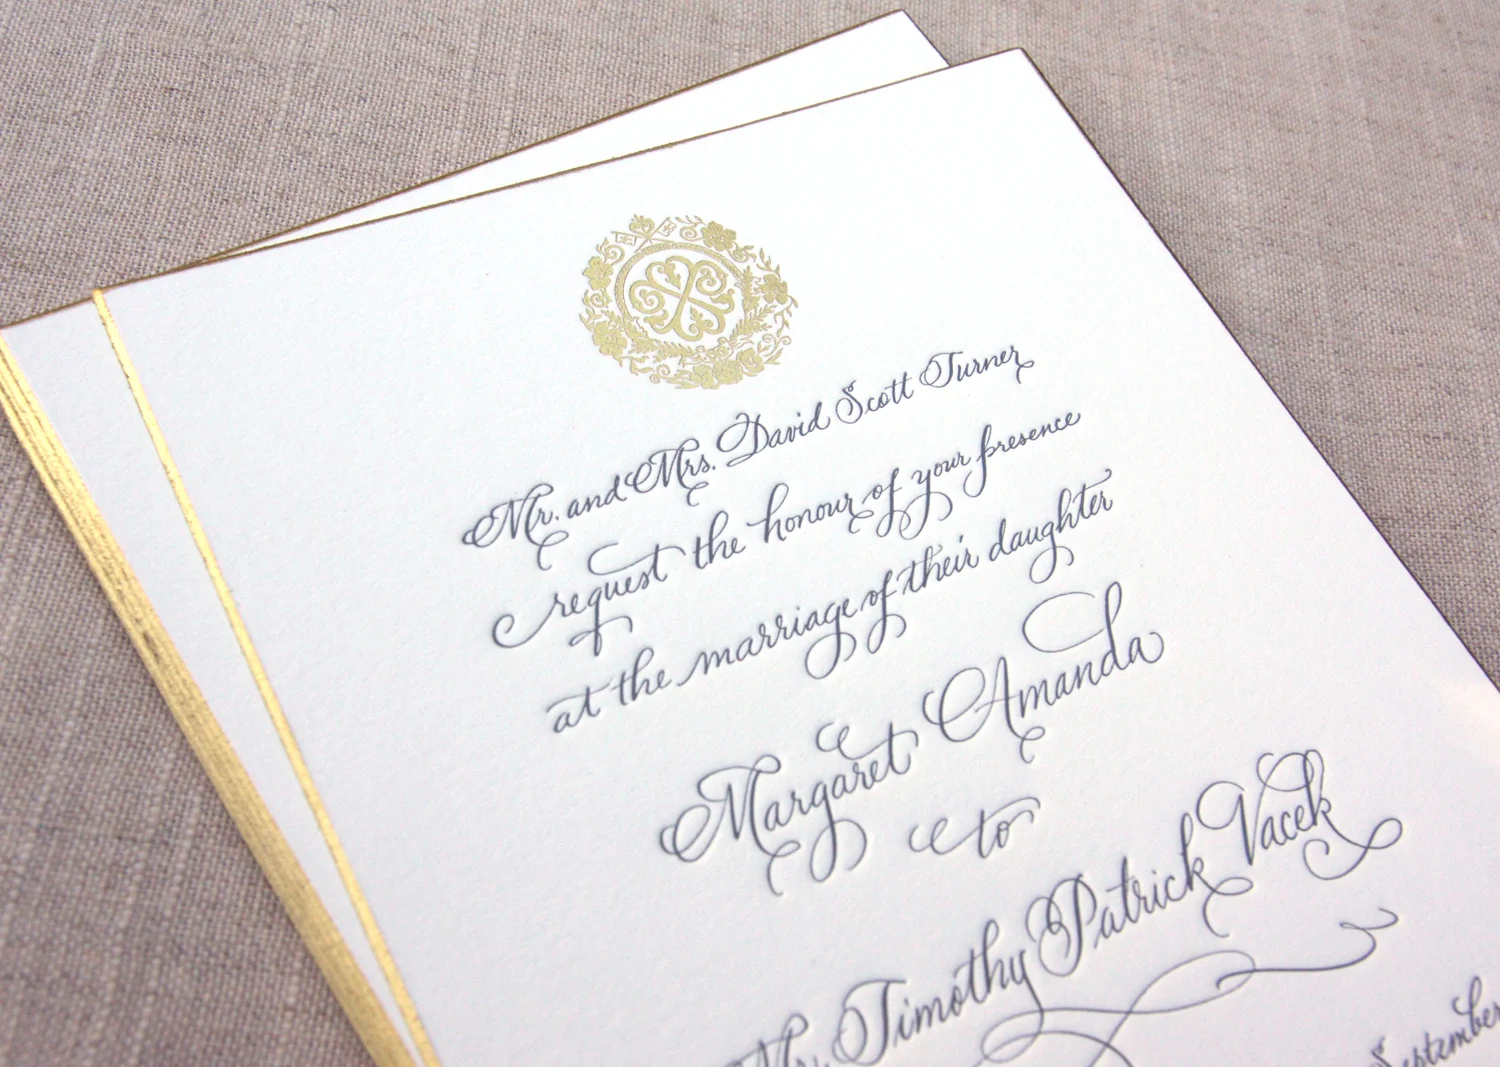 Mr. and Mrs. David Scott Turner
request the honour of your presence
at the marriage of their daughter
Margaret Amanda
to
Mr. Timothy Patrick Vacek
September